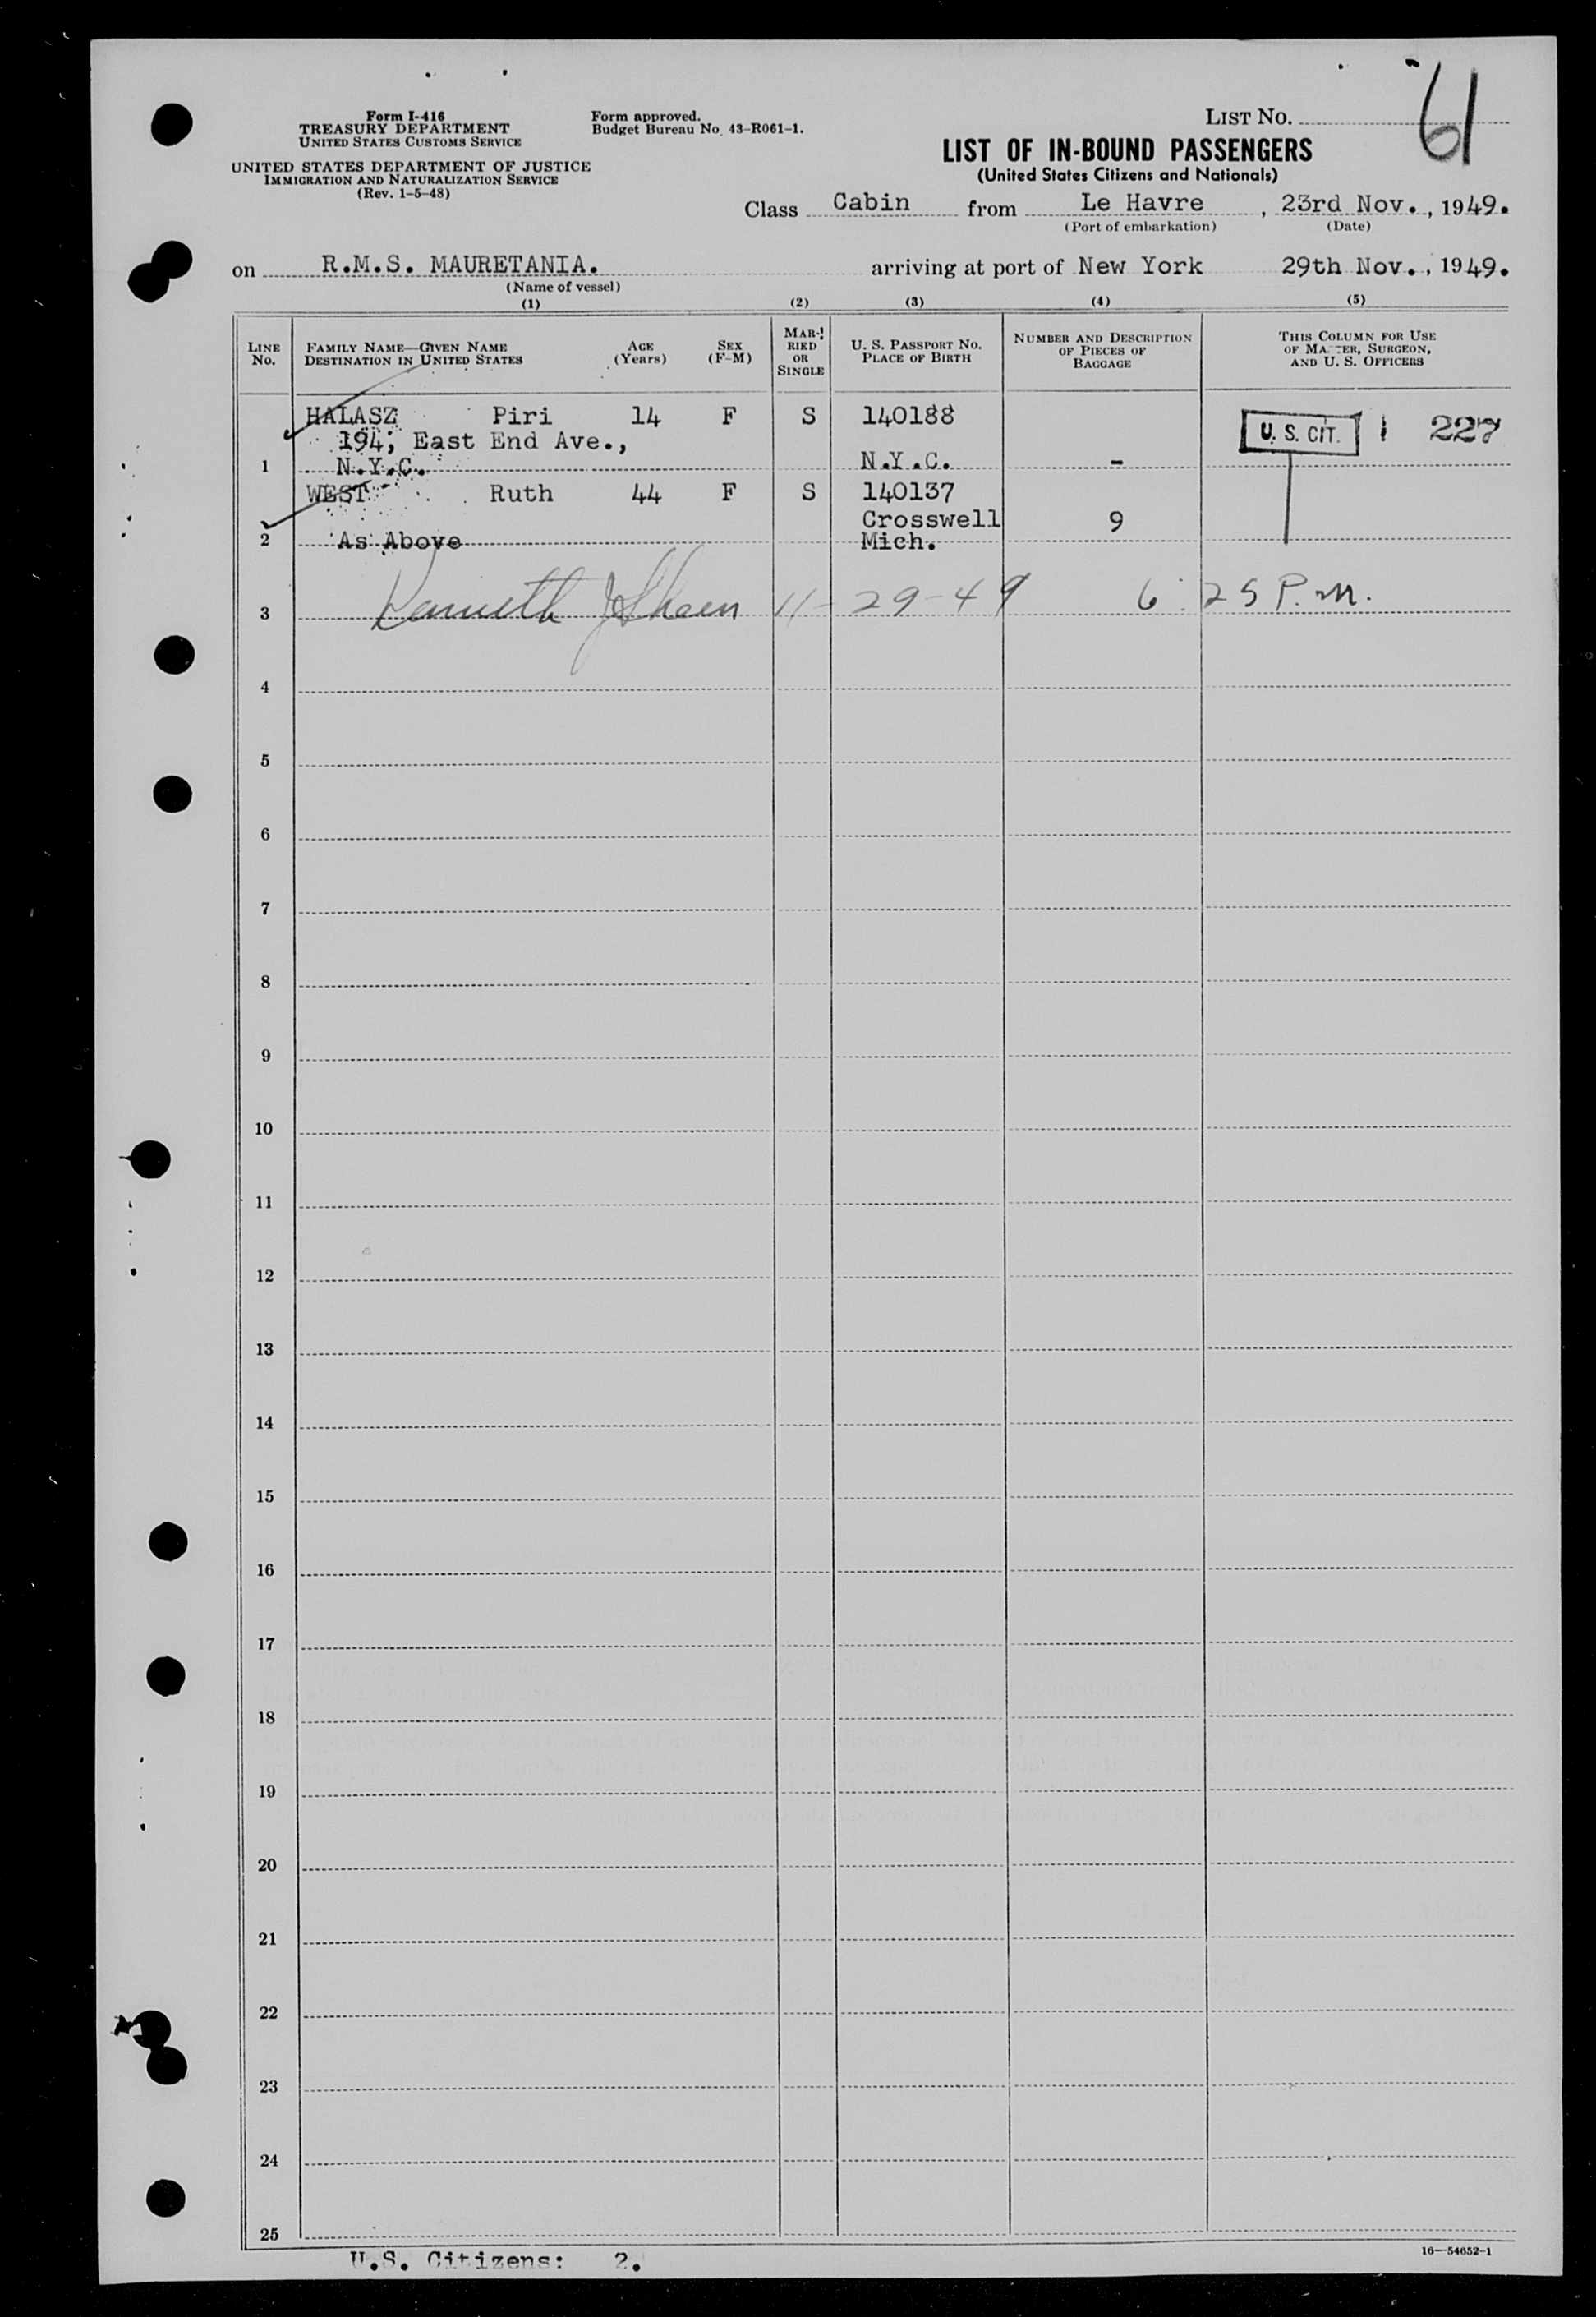 Form I-416
TREASURY DEPARTMENT
UNITED STATES CUSTOMS SERVICE
UNITED STATES DEPARTMENT OF JUSTICE
IMMIGRATION AND NATURALIZATION SERVICE
(Rev. 1-5-48)
Form approved.
Budget Bureau No. 43-R061-1.
LIST No. 61
LIST OF IN-BOUND PASSENGERS
(United States Citizens and Nationals)
Class Cabin from Le Havre, 23rd Nov., 1949.
(Port of embarkation) (Date)
on R.M.S. MAURETANIA. arriving at port of New York 29th Nov., 1949.
(Name of vessel)
(1) (2) (3) (4) (5)
LINE No.
FAMILY NAME—GIVEN NAME
DESTINATION IN UNITED STATES
AGE (Years)
SEX (F-M)
MARRIED OR SINGLE
U. S. PASSPORT No.
PLACE OF BIRTH
NUMBER AND DESCRIPTION OF PIECES OF BAGGAGE
THIS COLUMN FOR USE OF MASTER, SURGEON, AND U. S. OFFICERS
HALASZ Piri 14 F S 140188 U. S. CIT. 227
194, East End Ave.,
1 N.Y.C. N.Y.C. -
WEST Ruth 44 F S 140137
Crosswell 9
2 As Above Mich.
3 Kenneth 11-29-49 6:25 P.M.
4
5
6
7
8
9
10
11
12
13
14
15
16
17
18
19
20
21
22
23
24
25
U.S. Citizens: 2.
16—54652-1